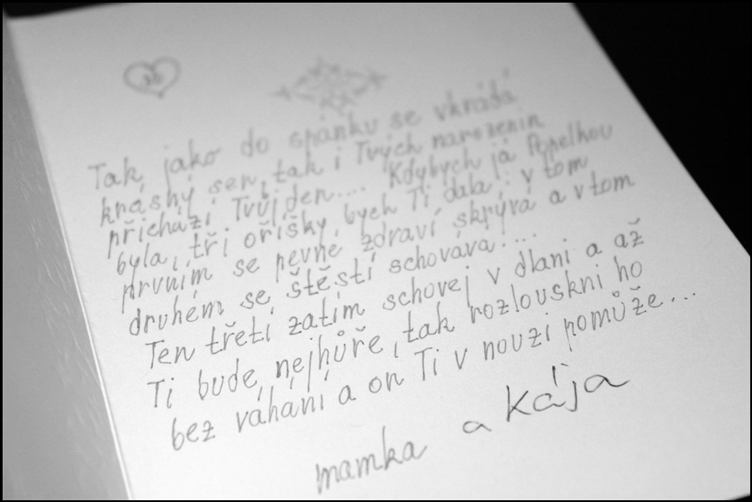 Tak, jako do spánku se vkrádá
krásný sen, tak i Tvých narozenin
přichází Tvůj den.... Kdybych já Popelkou
byla, tři oříšky bych Ti dala, v tom
prvním se pevné zdraví skrývá a v tom
druhém se štěstí schovává....
Ten třetí zatím schovej v dlani a až
Ti bude nejhůře, tak rozlouskni ho
bez váhání a on Ti v nouzi pomůže...
mamka a Kája